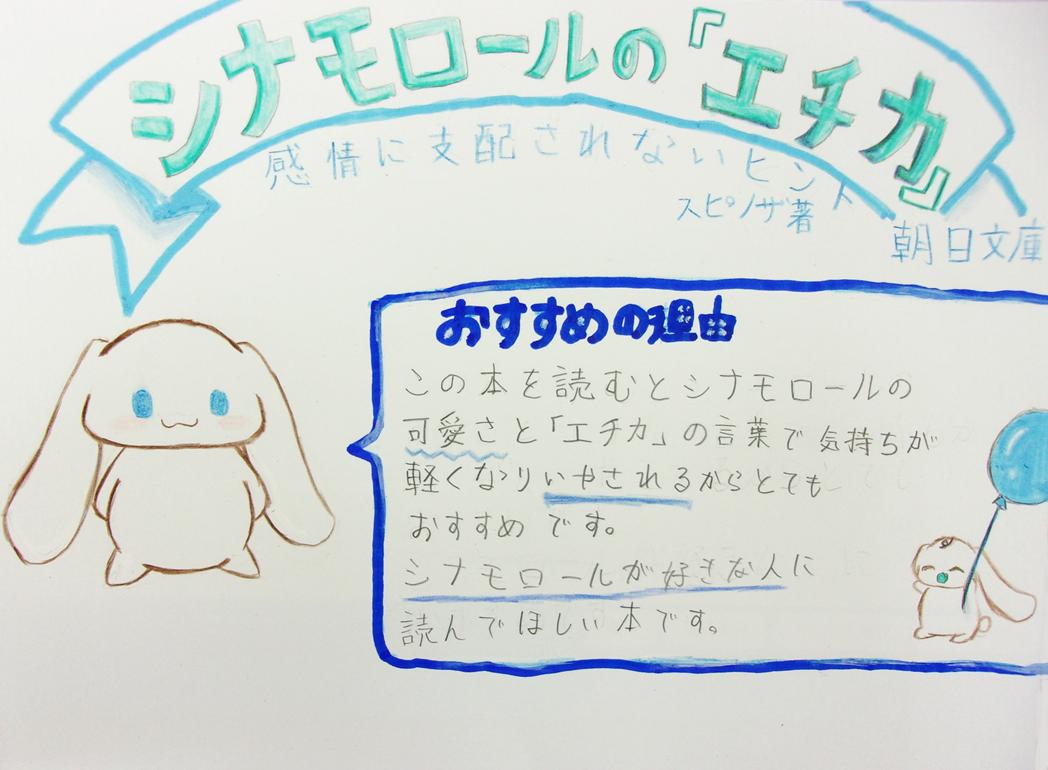 シナモロールの『エチカ』
感情に支配されないヒント
スピノザ著
朝日文庫
おすすめの理由
この本を読むとシナモロールの
可愛さと「エチカ」の言葉で気持ちが
軽くなりいやされるからとても
おすすめです。
シナモロールが好きな人に
読んでほしい本です。